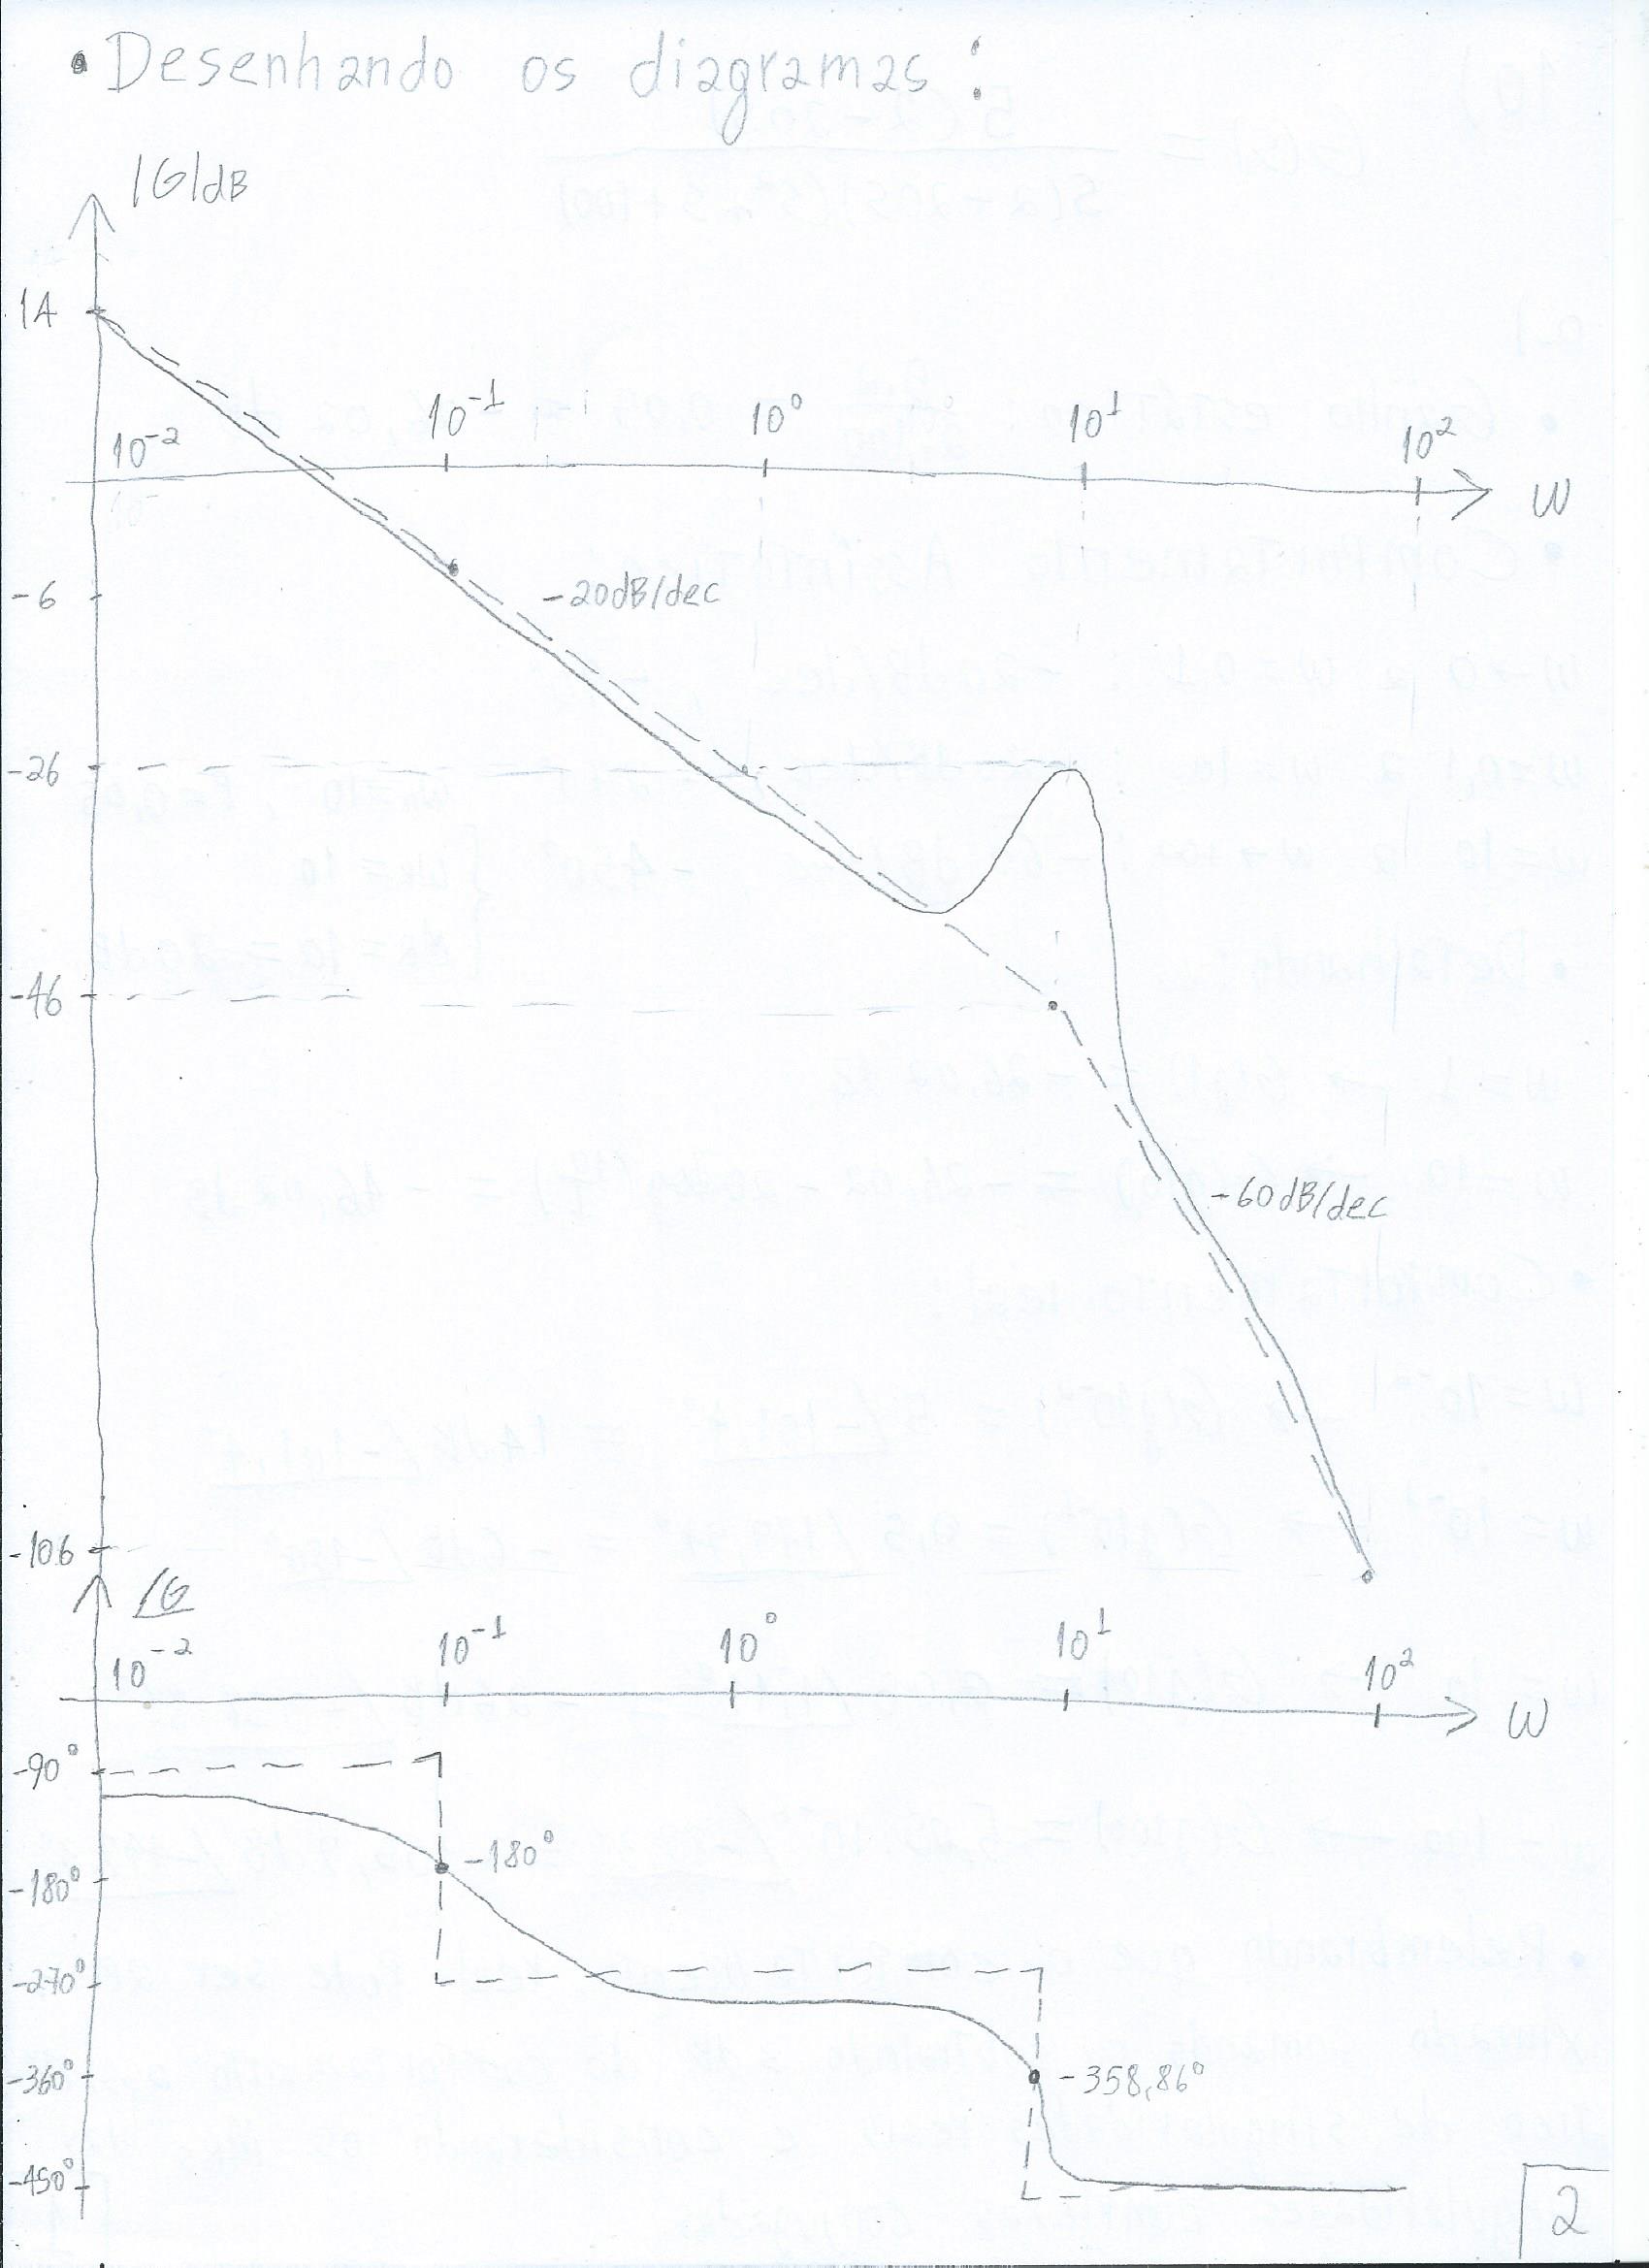 • Desenhando os diagramas:
|G|dB
14
10⁻² 10⁻¹ 10⁰ 10¹ 10² W
-6
-20dB/dec
-26
-46
-60dB/dec
-106
/G
10⁻² 10⁻¹ 10⁰ 10¹ 10² W
-90°
-180°
-180°
-270°
-360° -358,86°
-450°
2